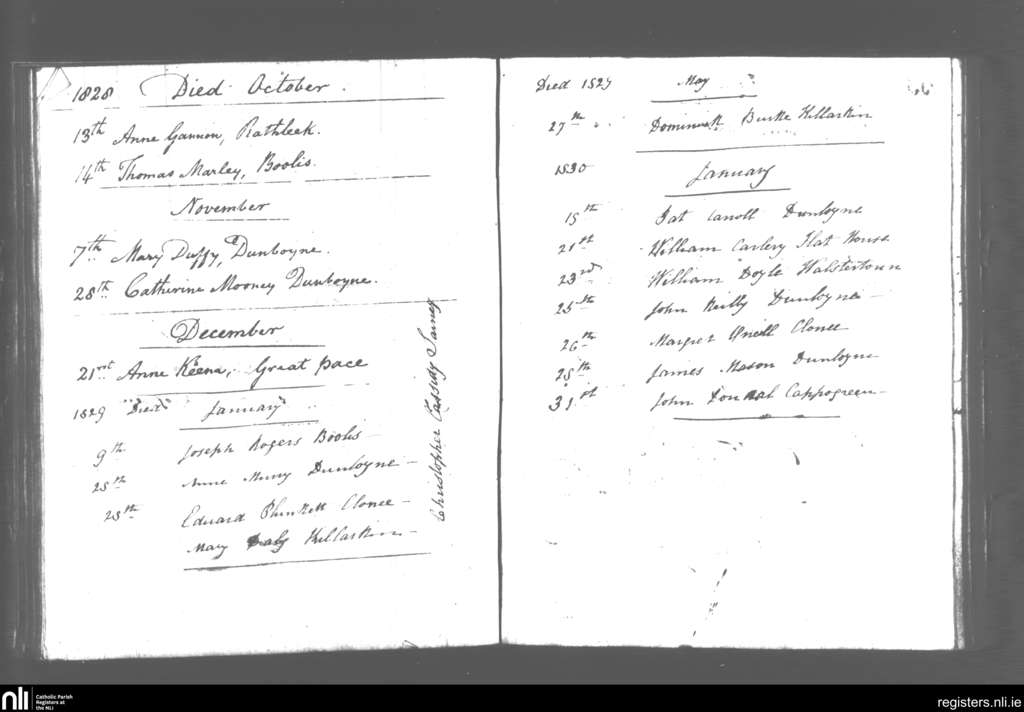 1828 Died October.
13th Anne Gannon, Rathleek.
14th Thomas Marley, Boolis.
November
7th Mary Duffy, Dunboyne.
28th Catherine Mooney Dunboyne.
December
21rst Anne Keena, Great pace
1829 Died January
9th Joseph Rogers Boolis
25th Anne Murry Dunboyne
28th Eduard Plunkett Clonee
Mary Daly Killaskin
Christopher Cassidy
Died 1829 May
27th Burke Killaskin
1830 January
15th Pat Carroll Dunboyne
21st William Flat House
23rd William Doyle
25th John Reilly Dunboyne
26th Margret Oneill Clonee
28th James Mason Dunboyne
31st John Cappogreen
nli
Catholic Parish
Registers at
the NLI
registers.nli.ie